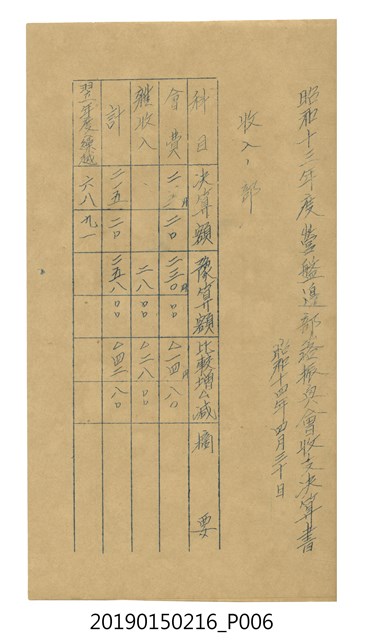 昭和十三年度營盤邊部落振興會收支決算書
昭和十四年四月三十日
收入ノ部
科目 決算額 豫算額 比較增△減 摘要
會費 二一 二〇 二三〇 〇〇 △一四 八〇
雜收入 二八 〇〇 △二八 〇〇
計 二一五 二〇 二五八 〇〇 △四二 八〇
翌年度繰越 六八 九一
20190150216_P006